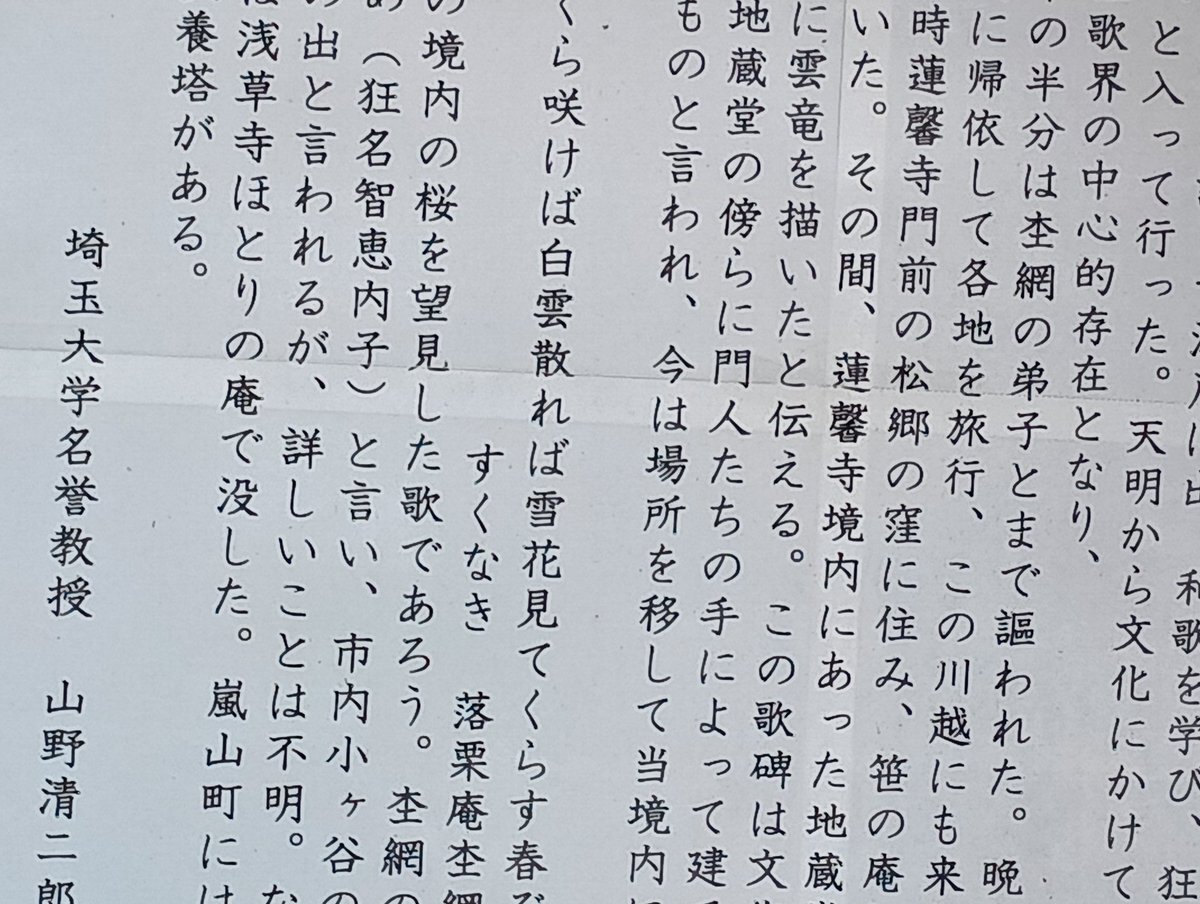 和歌を学び、狂
と入って行った。天明から文化にかけて
歌界の中心的存在となり、
の半分は杢網の弟子とまで謳われた。晩
に帰依して各地を旅行、この川越にも来
時蓮馨寺門前の松郷の窪に住み、笹の庵
いた。その間、蓮馨寺境内にあった地蔵
に雲竜を描いたと伝える。この歌碑は文
地蔵堂の傍らに門人たちの手によって建
ものと言われ、今は場所を移して当境内
くら咲けば白雲散れば雪花見てくらす春ぞ
すくなき　落栗庵杢網
の境内の桜を望見した歌であろう。杢網の
め（狂名智恵内子）と言い、市内小ヶ谷の
の出と言われるが、詳しいことは不明。な
は浅草寺ほとりの庵で没した。嵐山町には
養塔がある。
埼玉大学名誉教授　山野清二郎